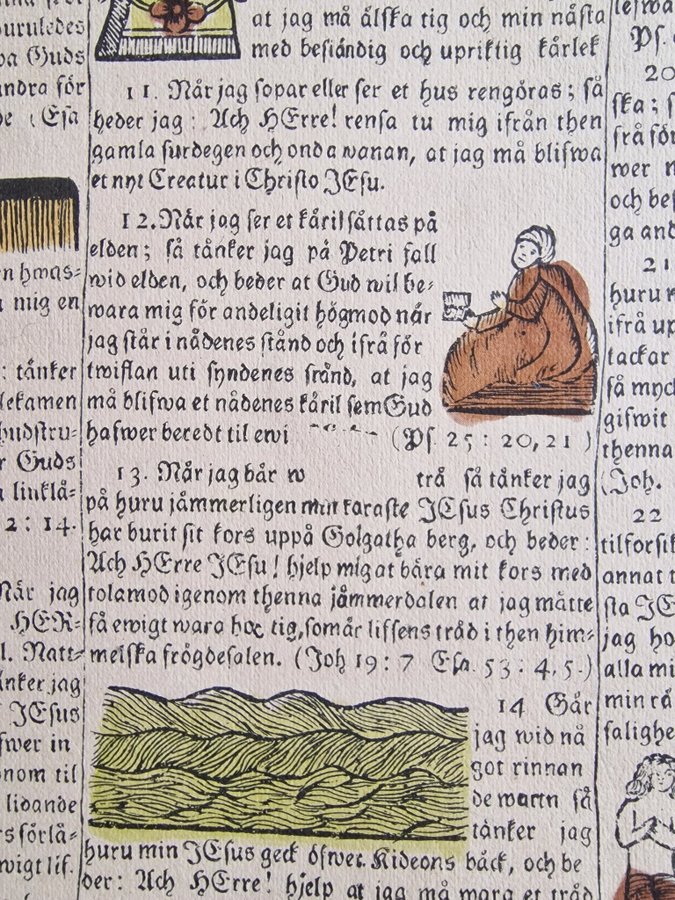 uruledes
pa Guds
andra för
(Esa
en hwas=
a mig en
: tänker
lekamen
hudstru=
r Guds
a linklä=
2 : 14.
När jag
HER=
l. Natt=
änker jag
JEsus
fwer in
onom til
lidande
rs förlå=
wigt lif.
at jag må älska tig och min nästa
med beständig och upriktig kärlek
11. När jag sopar eller ser et hus rengöras; så
beder jag: Ach HErre! rensa tu mig ifrån then
gamla surdegen och onda wanan, at jag må blifwa
et nyt Creatur i Christo JEsu.
12. När jag ser et käril sättas på
elden; så tänker jag på Petri fall
wid elden, och beder at Gud wil be=
wara mig för andeligit högmod när
jag står i nådenes stånd och ifrå för
twiflan uti syndenes stånd, at jag
må blifwa et nådenes käril sem Gud
hafwer beredt til ewi (Ps. 25 : 20, 21 )
13. När jag bär w trä så tänker jag
på huru jämmerligen min käraste JEsus Christus
har burit sit kors uppå Golgatha berg, och beder:
Ach HErre JEsu! hjelp mig at bära mit kors med
tolamod igenom thenna jämmerdalen at jag måtte
få ewigt wara hoc tig, som är lifsens träd i then him=
melska frögdesalen. (Joh 19 : 7 Esa. 53 : 4, 5.)
14 Går
jag wid nå
got rinnan
de wattn så
tänker jag
huru min JEsus geck öfwer Kideons bäck, och be
der: Ach HErre! hjelp at jag må wara et träd
lefwa
Ps.
20
ska; s
frå för
wer n
och bef
ga and
21
huru
ifrå up
tackar
så myck
gifwit
thenna
(Joh.
22
tilforsik
annat t
sta JE
jag ho
alla mi
min rä
salighe